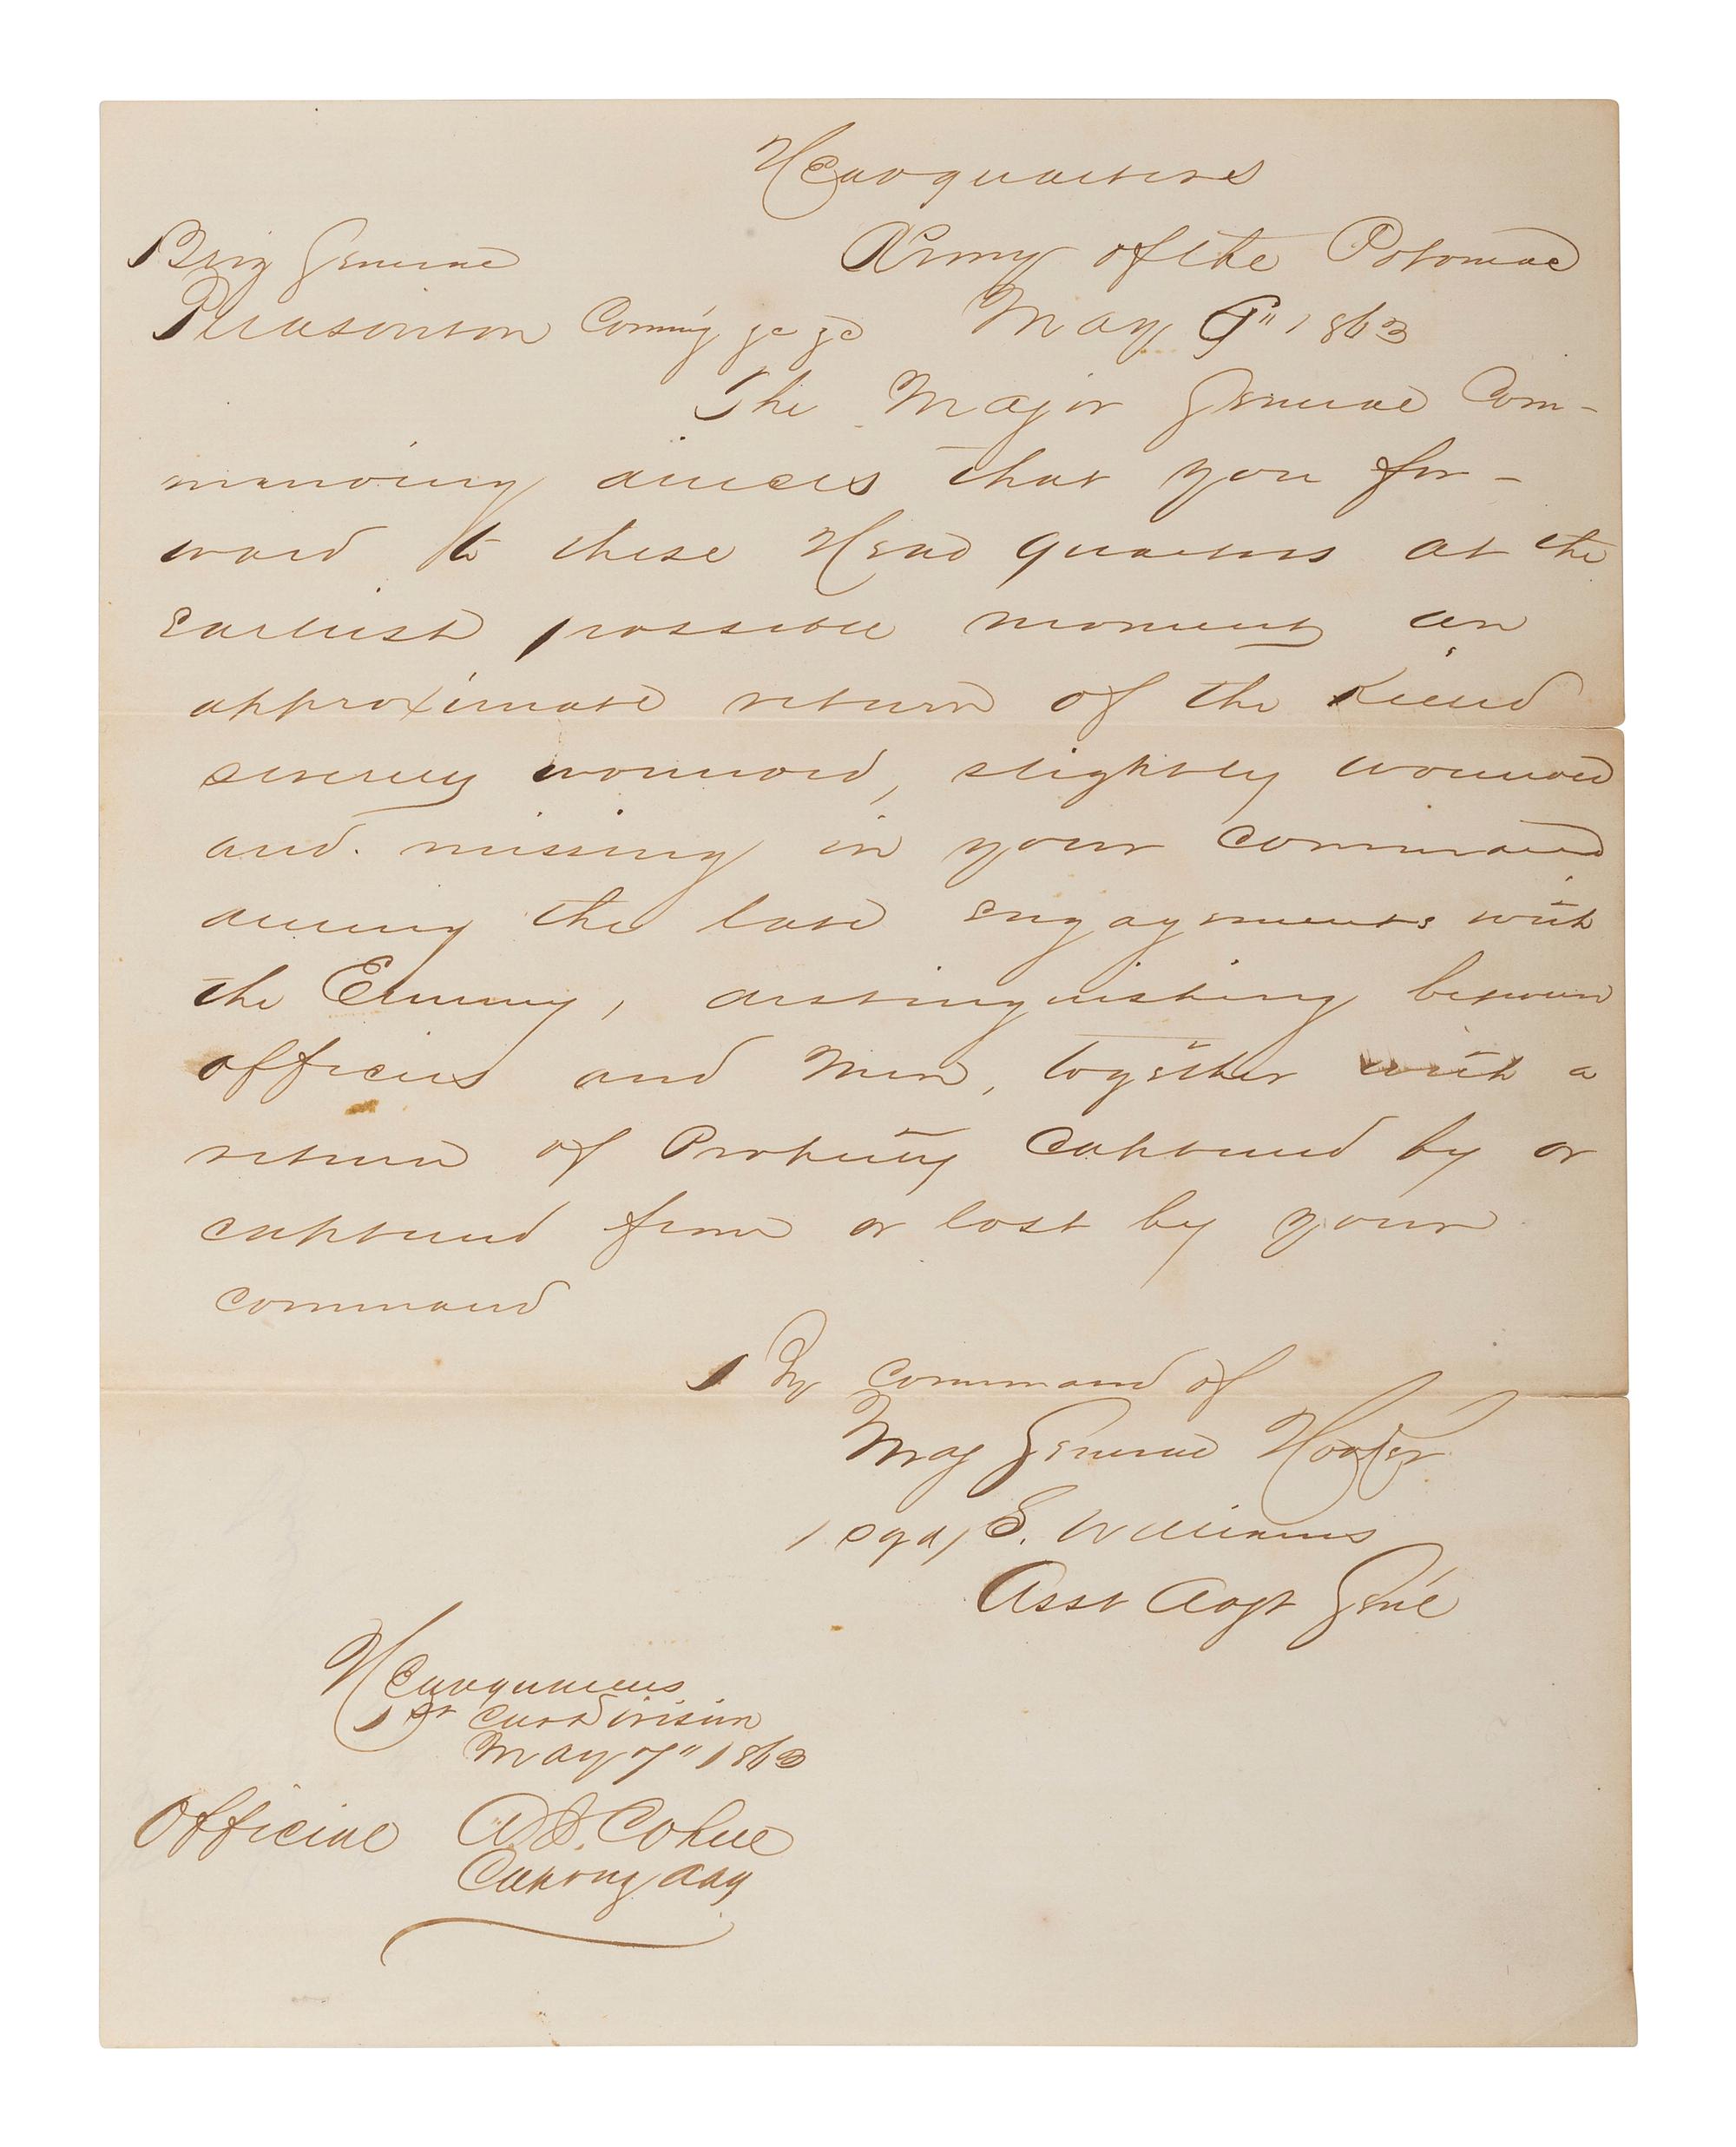 Headquarters
Brig General Army of the Potomac
Pleasonton Comm'g &c &c May 6" 1863
The Major General Com-
manding directs that you for-
ward to these Head quarters at the
Earliest possible moment an
approximate return of the Killed
severely wounded, slightly wounded
and missing in your Command
during the late engagements with
the Enemy, distinguishing between
officers and Men, together with a
return of Property Captured by or
captured from or lost by your
command
By command of
Maj General Hooker
/sgd/ S. Williams
Asst Adgt Gen'l
Headquarters
1st Cav Division
May 7" 1863
Official A. J. Cohen
Capt and aag